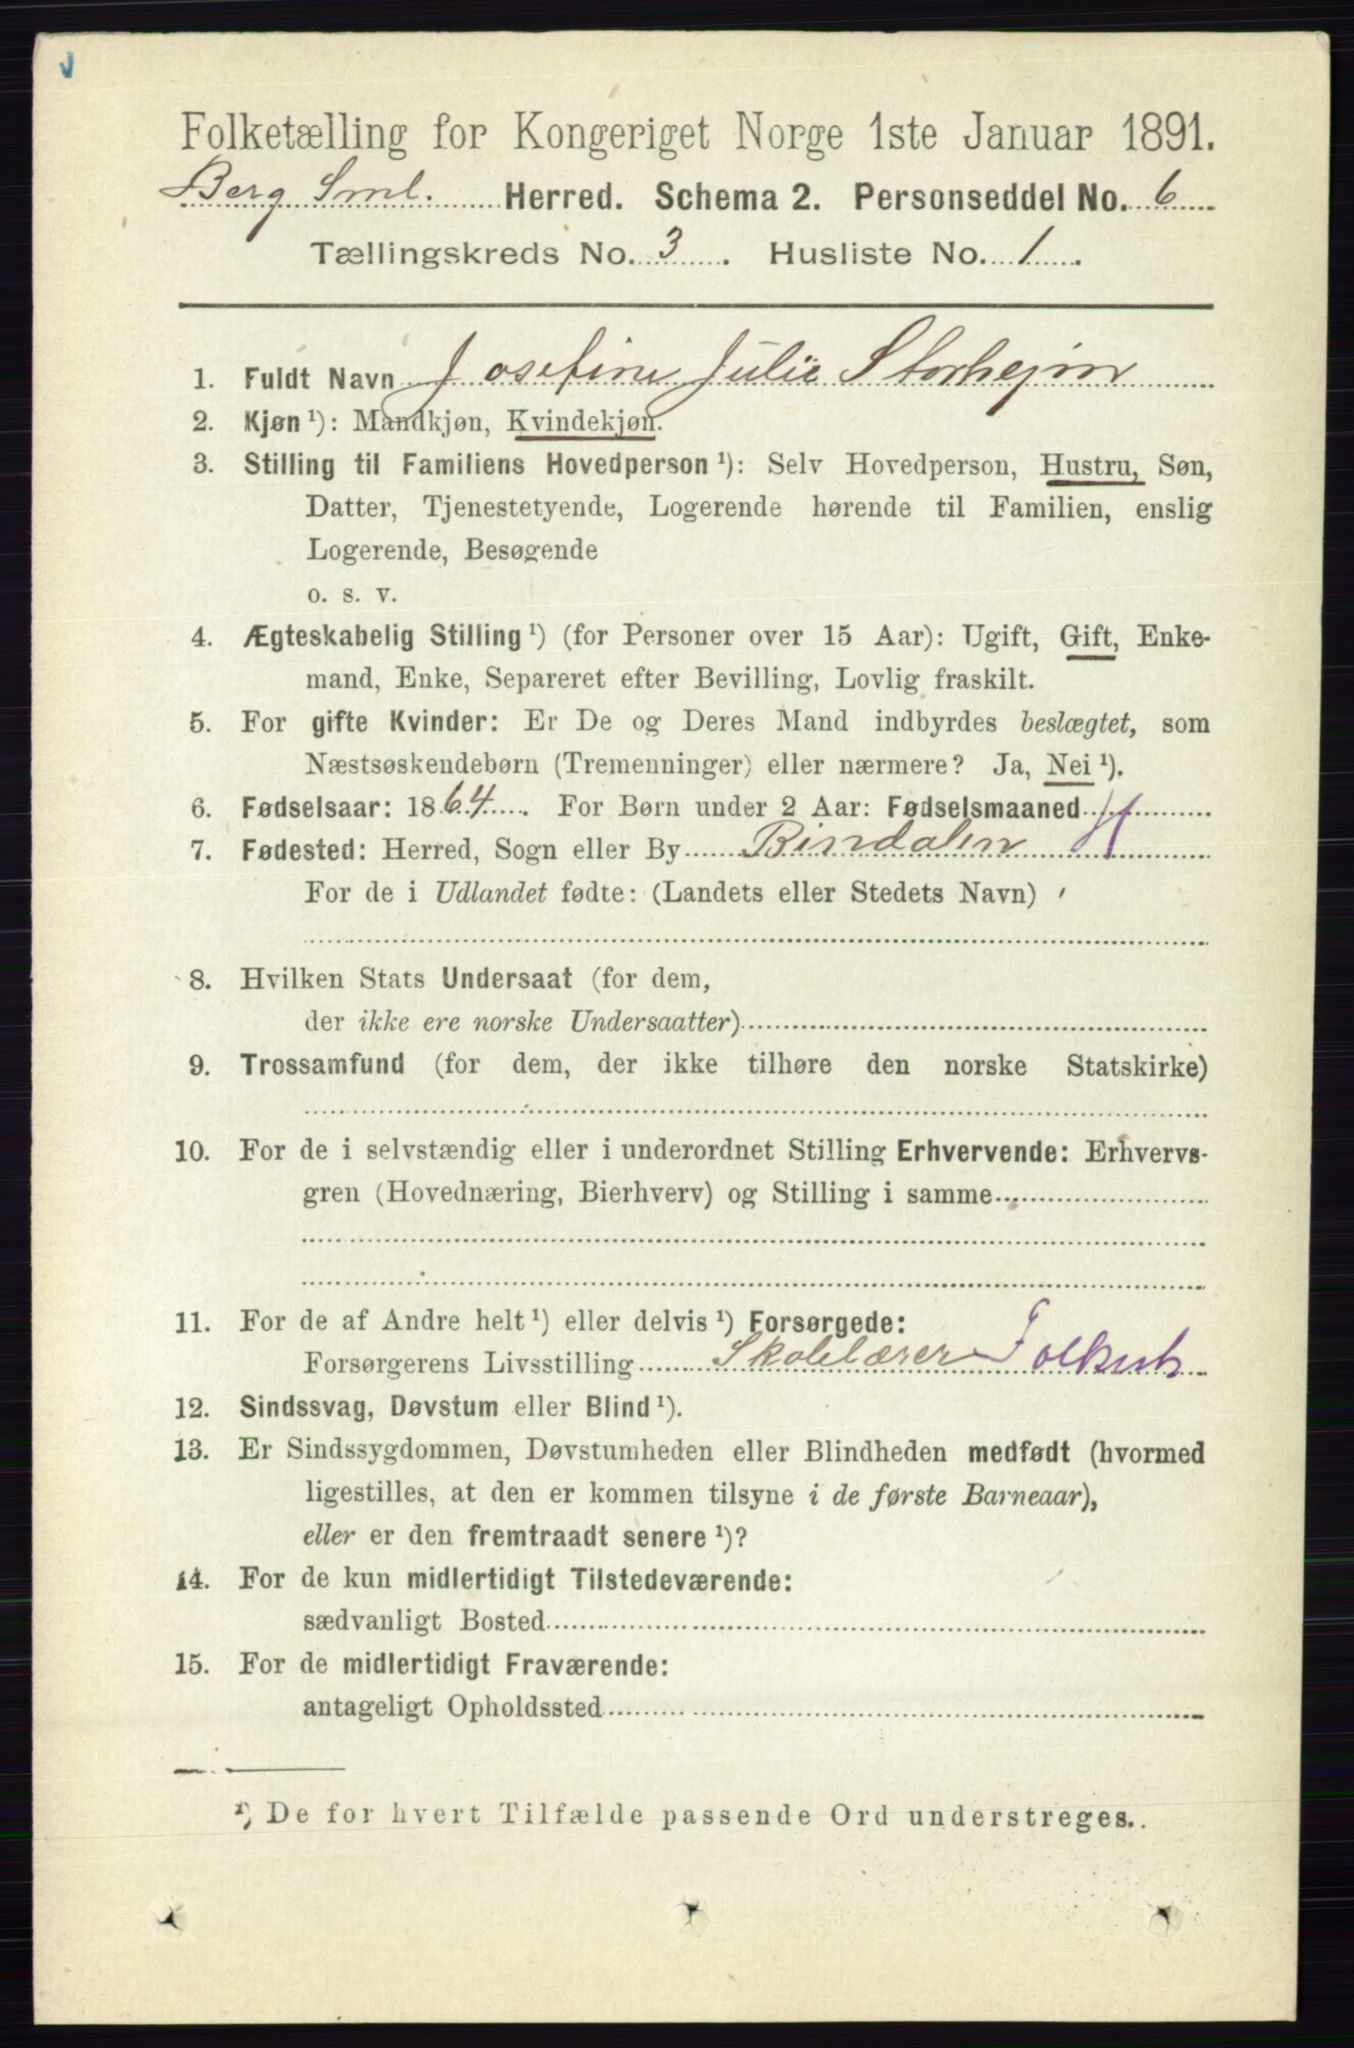 Folketælling for Kongeriget Norge 1ste Januar 1891.
Berg Sml. Herred. Schema 2. Personseddel No. 6
Tællingskreds No. 3. Husliste No. 1.
1. Fuldt Navn Josefine Julie Storhejm
2. Kjøn ¹): Mandkjøn, Kvindekjøn.
3. Stilling til Familiens Hovedperson ¹): Selv Hovedperson, Hustru, Søn,
Datter, Tjenestetyende, Logerende hørende til Familien, enslig
Logerende, Besøgende
o. s. v.
4. Ægteskabelig Stilling ¹) (for Personer over 15 Aar): Ugift, Gift, Enke-
mand, Enke, Separeret efter Bevilling, Lovlig fraskilt.
5. For gifte Kvinder: Er De og Deres Mand indbyrdes beslægtet, som
Næstsøskendebørn (Tremenninger) eller nærmere? Ja, Nei ¹).
6. Fødselsaar: 1864. For Børn under 2 Aar: Fødselsmaaned
7. Fødested: Herred, Sogn eller By Bindalen H
For de i Udlandet fødte: (Landets eller Stedets Navn)
8. Hvilken Stats Undersaat (for dem,
der ikke ere norske Undersaatter)
9. Trossamfund (for dem, der ikke tilhøre den norske Statskirke)
10. For de i selvstændig eller i underordnet Stilling Erhvervende: Erhvervs-
gren (Hovednæring, Bierhverv) og Stilling i samme
11. For de af Andre helt ¹) eller delvis ¹) Forsørgede:
Forsørgerens Livsstilling Skolelærer
12. Sindssvag, Døvstum eller Blind ¹).
13. Er Sindssygdommen, Døvstumheden eller Blindheden medfødt (hvormed
ligestilles, at den er kommen tilsyne i de første Barneaar),
eller er den fremtraadt senere ¹)?
14. For de kun midlertidigt Tilstedeværende:
sædvanligt Bosted
15. For de midlertidigt Fraværende:
antageligt Opholdssted
¹) De for hvert Tilfælde passende Ord understreges.